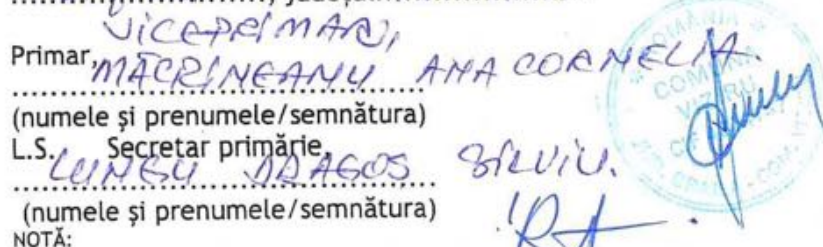 VICEPRIMAR,
Primar, MĂCRINEANU ANA CORNELIA.
(numele şi prenumele/semnătura)
L.S. Secretar primărie,
LUNGU DRAGOS SILVIU.
(numele şi prenumele/semnătura)
NOTĂ:
ROMÂNIA
COMUNA
VIZIRU